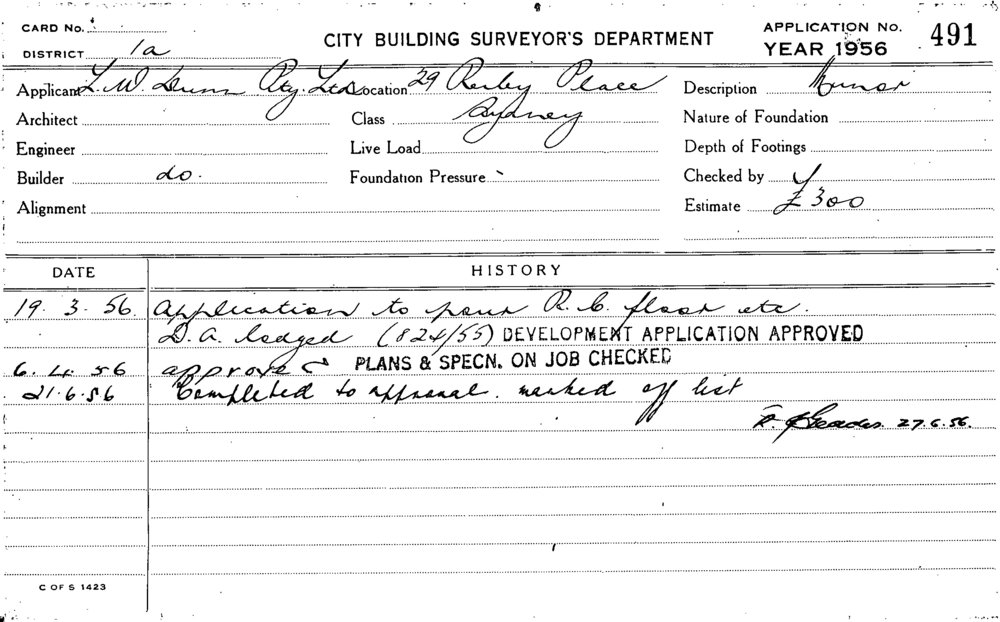 CARD No.
DISTRICT 1a
CITY BUILDING SURVEYOR'S DEPARTMENT
APPLICATION No. 491
YEAR 1956
Applicant L. W. Dunn Pty. Ltd Location 29 Place Description Minor
Architect Class Sydney Nature of Foundation
Engineer Live Load Depth of Footings
Builder do. Foundation Pressure Checked by
Alignment Estimate £300
DATE HISTORY
19. 3. 56. Application to pour R. C. floor etc.
D. A. lodged (824/55) DEVELOPMENT APPLICATION APPROVED
6. 4. 56 approve PLANS & SPECN. ON JOB CHECKED
21.6.56 Completed to approval. marked off list
27.6.56.
C OF S 1423